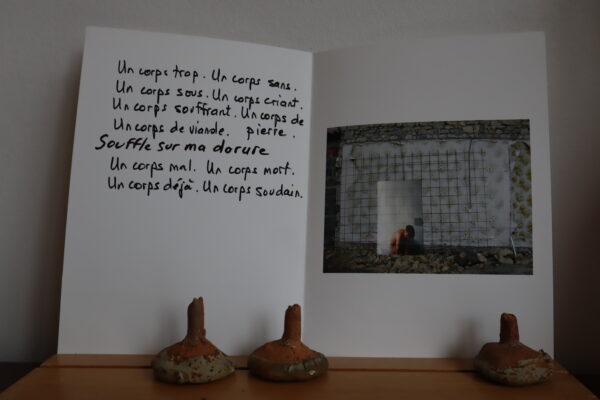 Un corps trop. Un corps sans.
Un corps sous. Un corps criant.
Un corps souffrant. Un corps de
Un corps de viande. pierre.
Souffle sur ma dorure
Un corps mal. Un corps mort.
Un corps déjà. Un corps soudain.